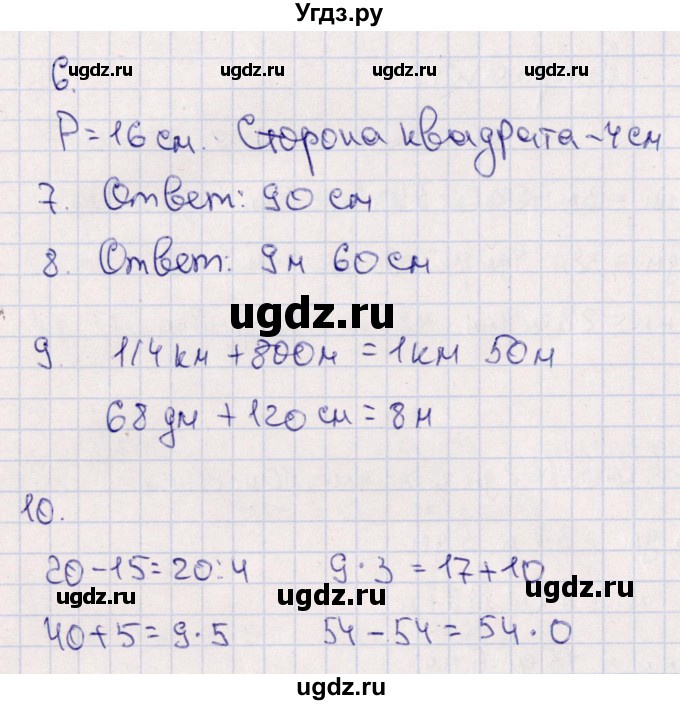 Угдз.ру
ugdz.ru ugdz.ru ugdz.ru
6.
P = 16 см. Сторона квадрата - 4 см
7. Ответ: 90 см
8. Ответ: 9м 60 см
ugdz.ru
9. 1/4 км + 800 м = 1 км 50 м
68 дм + 120 см = 8 м
10.
20 - 15 = 20 : 4 9 · 3 = 17 + 10
ugdz.ru ugdz.ru ugdz.ru
40 + 5 = 9 · 5 54 - 54 = 54 · 0
ugdz.ru